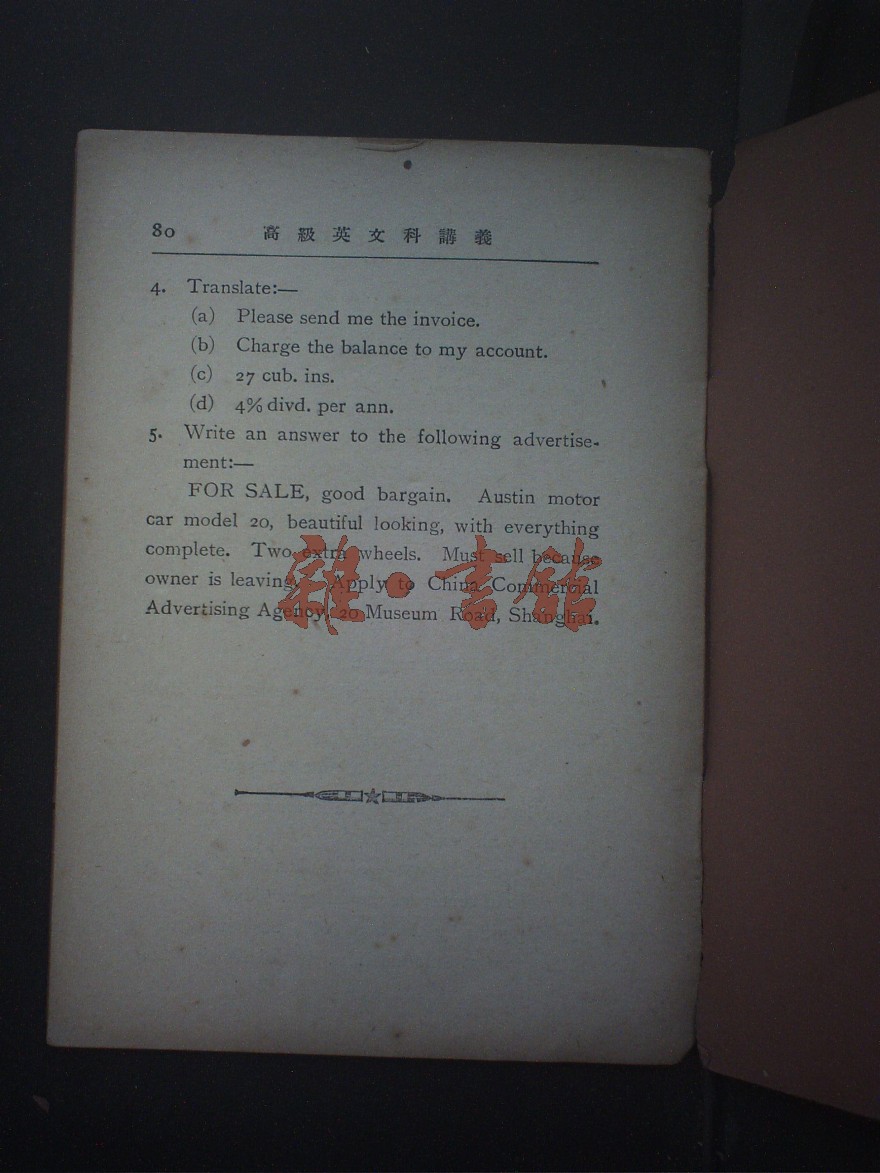 80 高級英文科講義
4. Translate:—
(a) Please send me the invoice.
(b) Charge the balance to my account.
(c) 27 cub. ins.
(d) 4% divd. per ann.
5. Write an answer to the following advertise-
ment:—
FOR SALE, good bargain. Austin motor
car model 20, beautiful looking, with everything
complete. Two extra wheels. Must sell because
owner is leaving. Apply to China Commercial
Advertising Agency, 20 Museum Road, Shanghai.
雜·書館